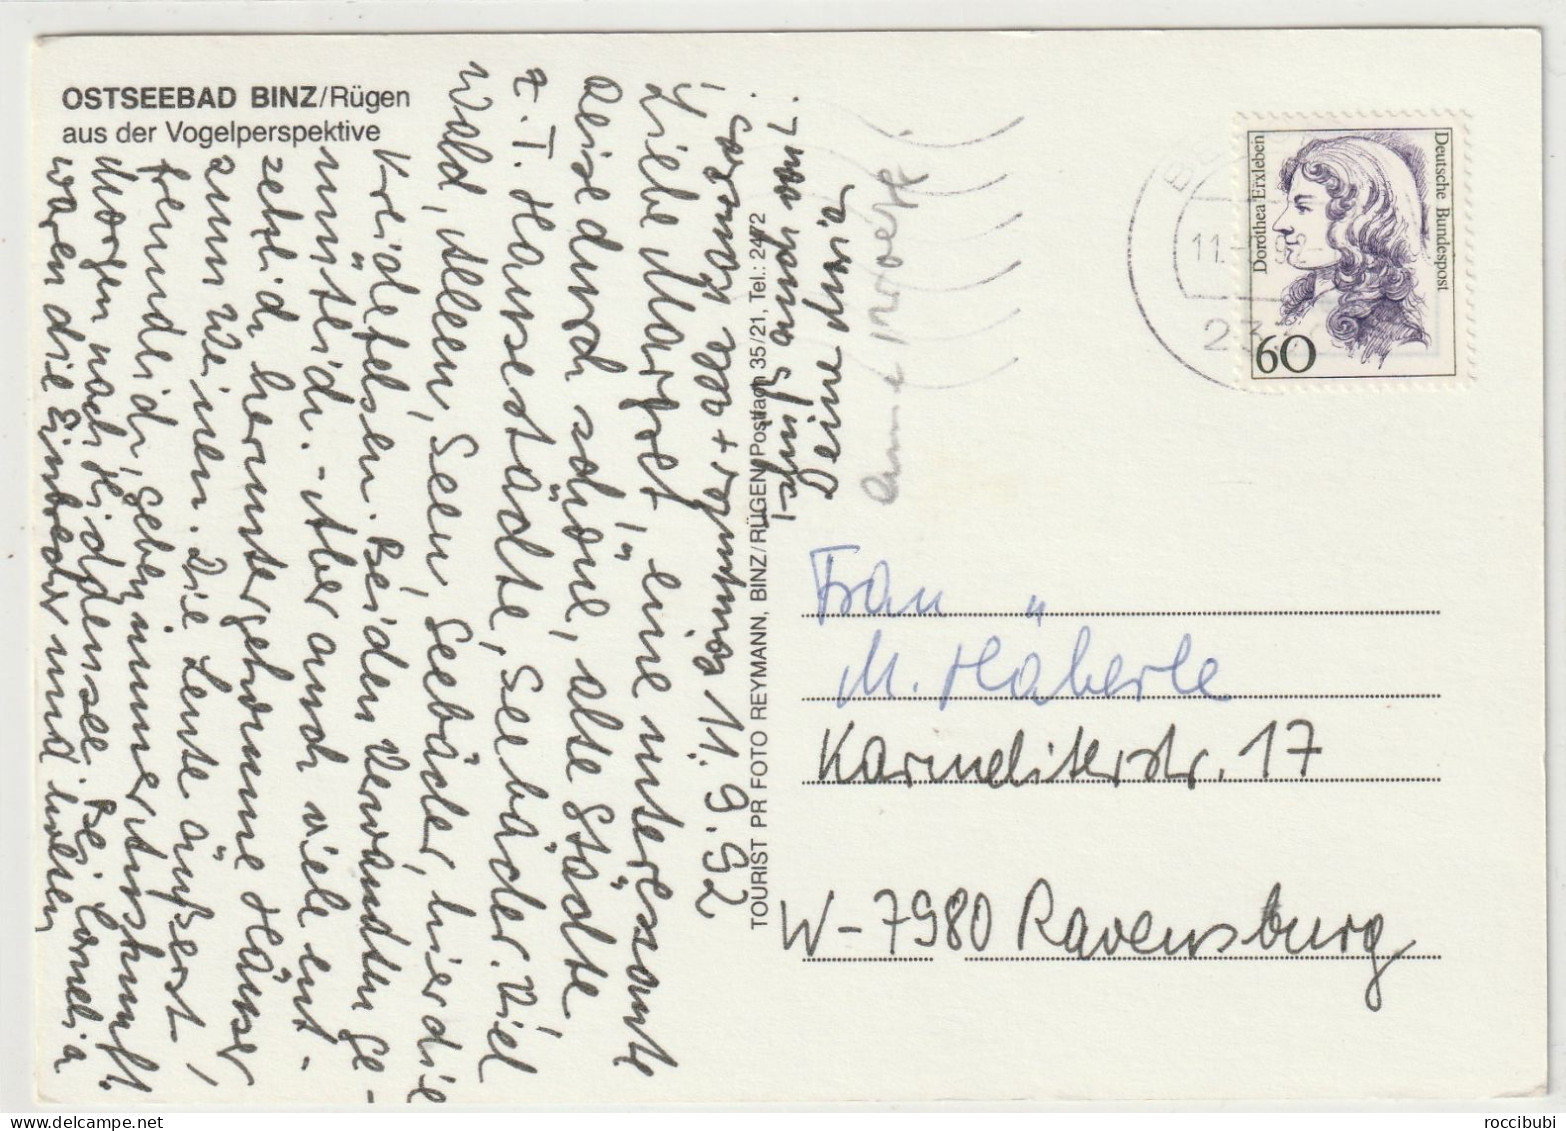 OSTSEEBAD BINZ/Rügen
aus der Vogelperspektive
11.9.92
Liebe Margret, eine interessante
Reise durch schöne, alte Städte,
z.T. Hansestädte, Seebäder. Viel
Wald, Alleen, Seen, Seebäder, hier die
Kreidefelsen. Bei den Verwandten ge-
mütlich. - Aber auch viele ent-
setzlich heruntergekommene Häuser
zum Weinen. Die Leute äußerst
freundlich, geben immer Auskunft.
Morgen nach Hiddensee. Bei Cornelia
waren die Eindrücke und
Deine
TOURIST PR FOTO REYMANN, BINZ/RÜGEN, Postfach 35/21, Tel.: 2472
Deutsche Bundespost
Dorothea Erxleben
60
11.
92
23
Frau
M. Häberle
Karmeliterstr. 17
W-7980 Ravensburg
roccibubi